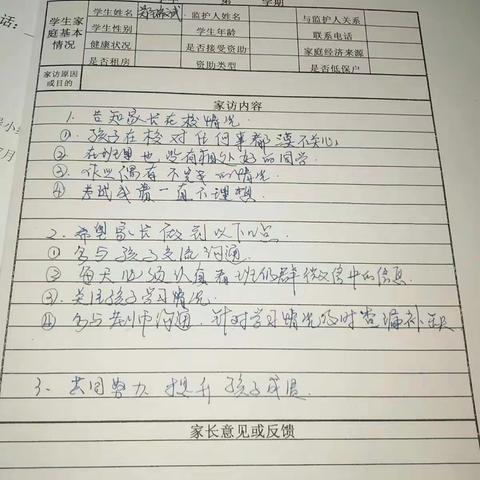 话:
第 学期
学生家庭基本情况
学生姓名 监护人姓名 与监护人关系
学生性别 学生年龄 联系电话
健康状况 是否接受资助 家庭经济来源
是否租房 资助类型 是否低保户
家访原因或目的
家访内容
1. 告知家长在校情况.
①. 孩子在校对任何事都漠不关心;
②. 在班里也没有相处好的同学
③. 作业偶有不完 的情况.
④ 考试成费一直不理想.
2. 希望家长做到以下几点.
① 多与孩子交流沟通.
② 每天必须认真看班级群微信中的信息.
③. 关注孩子学习情况.
④ 多与老师沟通. 针对学习情况及时查漏补缺
3. 共同努力 提升孩子成绩.
家长意见或反馈